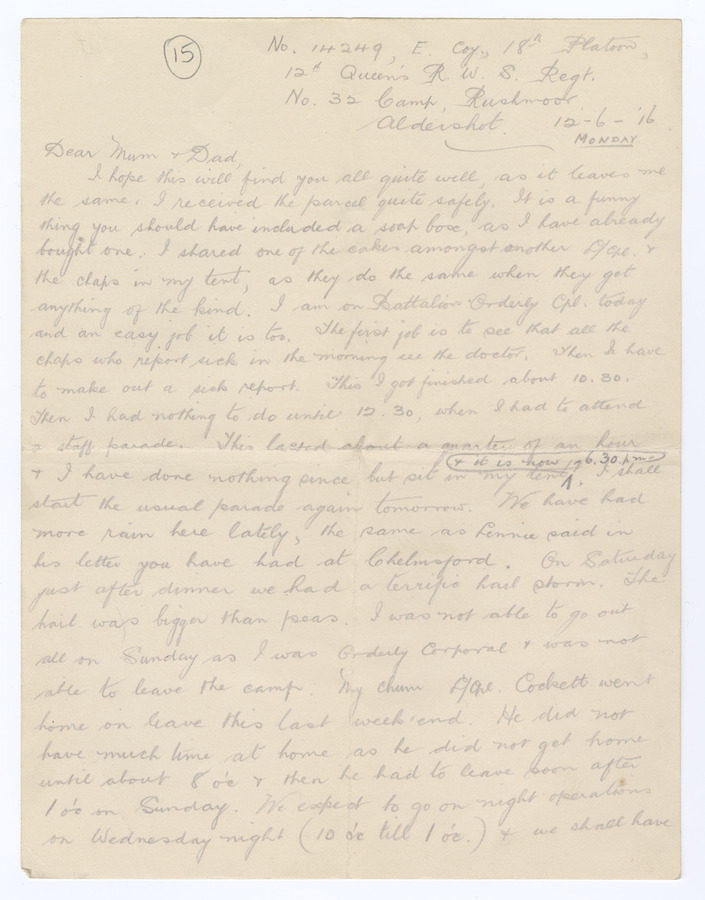 15
No. 14249, E. Coy., 18th Platoon,
12th Queen's R. W. S. Regt.
No. 32 Camp, Rushmoor.
Aldershot. 12-6-'16
MONDAY
Dear Mum & Dad,
I hope this will find you all quite well, as it leaves me
the same. I received the parcel quite safely. It is a funny
thing you should have included a soap box, as I have already
bought one. I shared one of the cakes amongst another L/Cpl. &
the chaps in my tent, as they do the same when they get
anything of the kind. I am on Battalion Orderly Cpl. today
and an easy job it is too. The first job is to see that all the
chaps who report sick in the morning see the doctor. Then I have
to make out a sick report. This I got finished about 10.30.
Then I had nothing to do until 12.30, when I had to attend
a staff parade. This lasted about a quarter of an hour
& it is now 6.30. pm.
& I have done nothing since but sit in my tent. I shall
start the usual parade again tomorrow. We have had
more rain here lately, the same as Lennie said in
his letter you have had at Chelmsford. On Saturday
just after dinner we had a terrific hail storm. The
hail was bigger than peas. I was not able to go out
all on Sunday as I was Orderly Corporal & was not
able to leave the camp. My chum L/Cpl. Cockett went
home on leave this last week end. He did not
have much time at home as he did not get home
until about 8 o'c & then he had to leave soon after
1 o'c on Sunday. We expect to go on night operations
on Wednesday night (10 o'c till 1 o'c.) & we shall have